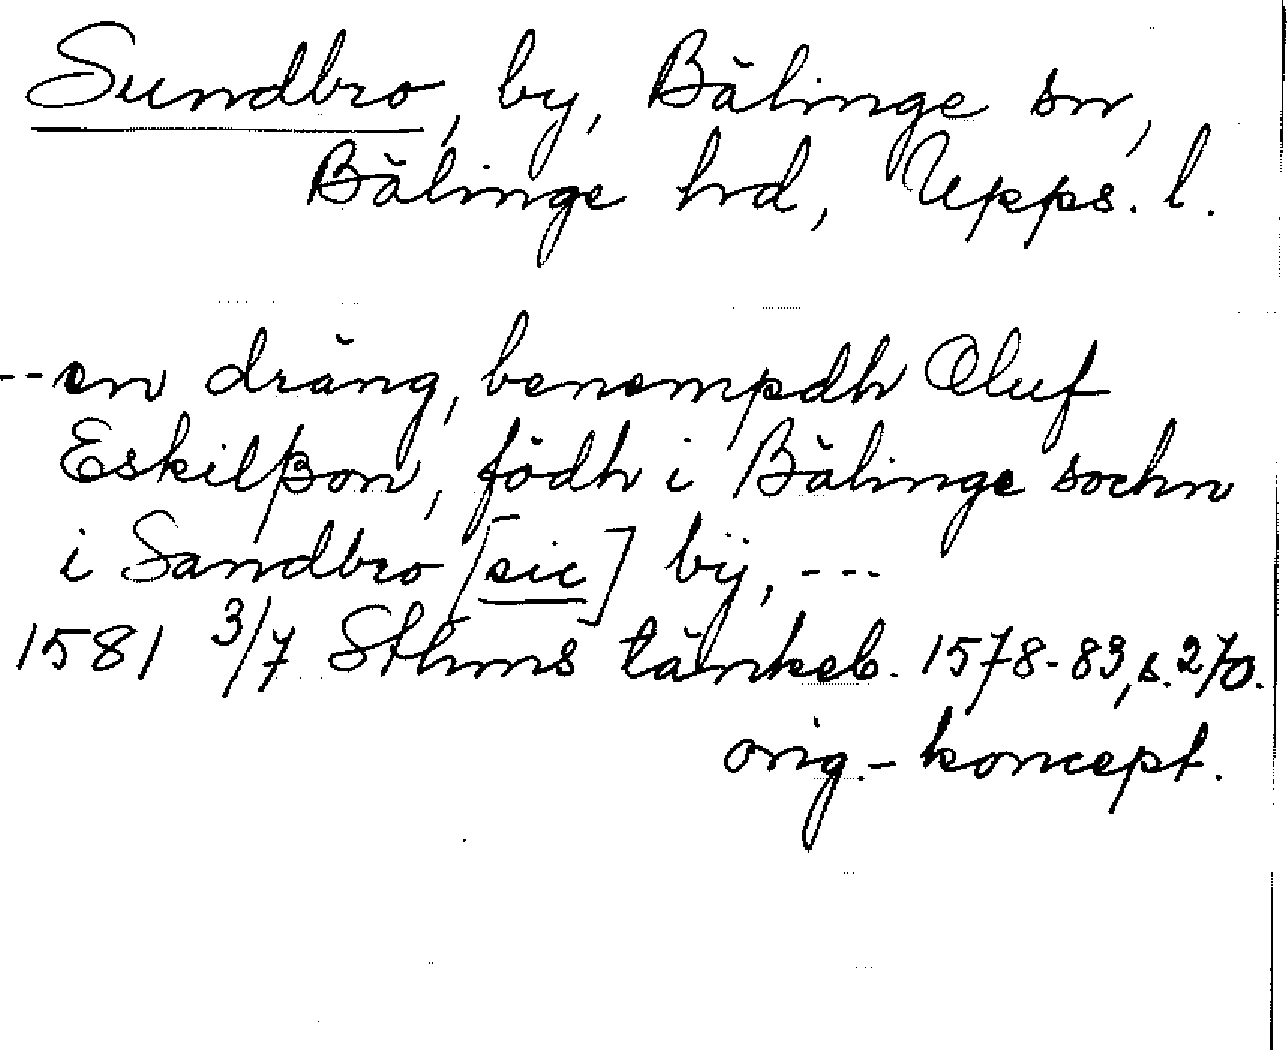 Sundbro, by, Bälinge sn,
Bälinge hrd, Upps. l.
--en dräng, benempdh Oluf
Eskilßon, födh i Bälinge sochn
i Sandbro [sic] bÿ, ---
1581 3/7 Sthms tänkeb. 1578-83, s. 270.
orig.-koncept.